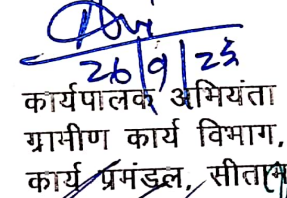 26/9/25
कार्यपालक अभियंता
ग्रामीण कार्य विभाग,
कार्य प्रमंडल,